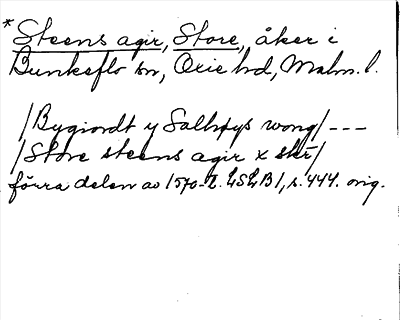 * Steens agir, Store, åker i
Bunkeflo sn, Oxie hd, Malm. l.
/Bygiordt y Salhøys wong/ ---
/Store steens agir x skr/
förra delen av 1570-t. LSLB1, s. 444. orig.